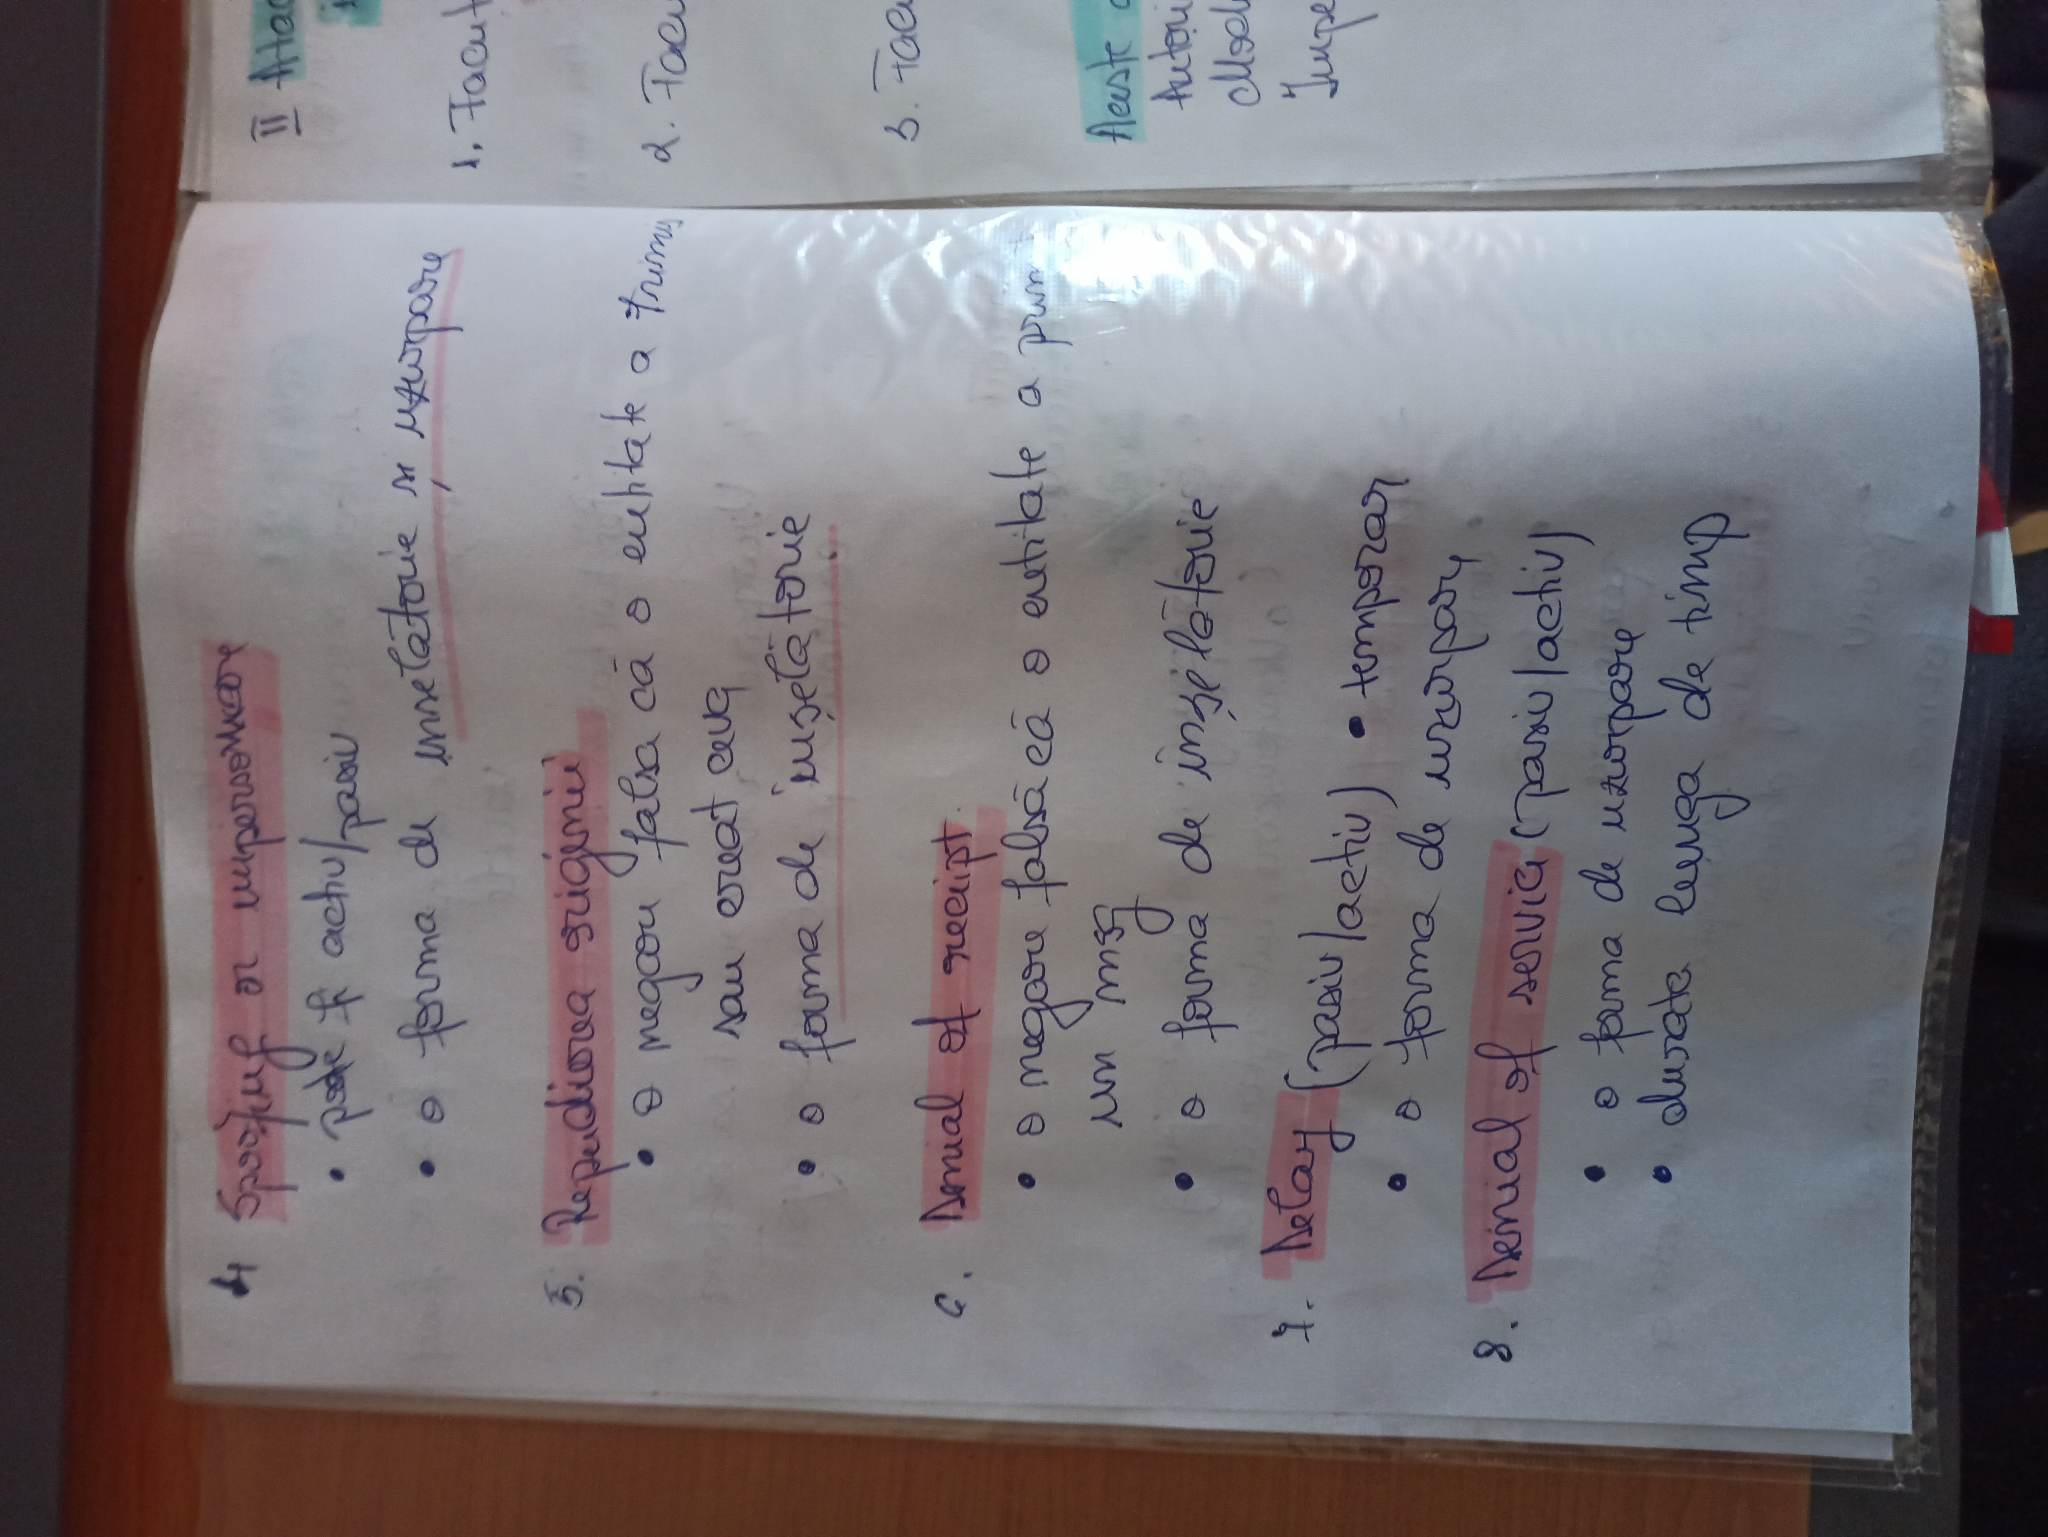 4 Spoofing or impersonare
• poate fi activ/pasiv
• o forma de inselătorie și uzurpare
5. Repudierea originii
• o negare falsa că o entitate a trimis
sau creat ceva
• o forma de înșelătorie
6. Denial of receipt
• o negare falsă că o entitate a prim
un msg
• o forma de înșelătorie
7. Delay (pasiv/activ) • temporar
• o forma de uzurpare
8. Denial of service (pasiv/activ)
• o forma de uzurpare
• durata lunga de timp
II Atac
1. Facut
2. Facu
3. Facu
Aceste
Autori
Modi
Impe